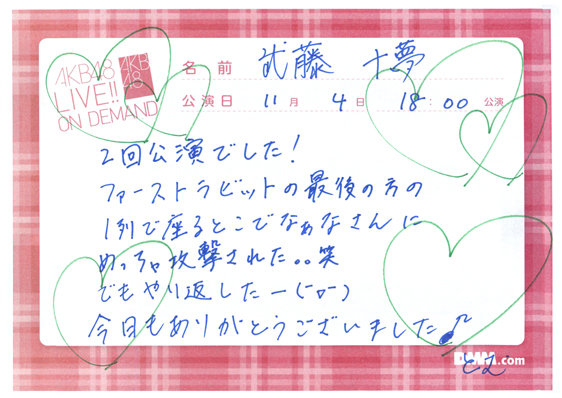 AKB48
LIVE!!
ON DEMAND
AKB
48
名前 武藤 十夢
公演日 11月 4日 18:00 公演
2回公演でした!
ファーストラビットの最後の方の
1列で座るとこでなぁなさんに
めっちゃ攻撃された。。笑
でもやり返したー(ˇoˇ)
今日もありがとうございました♪
DMM.com
とむ